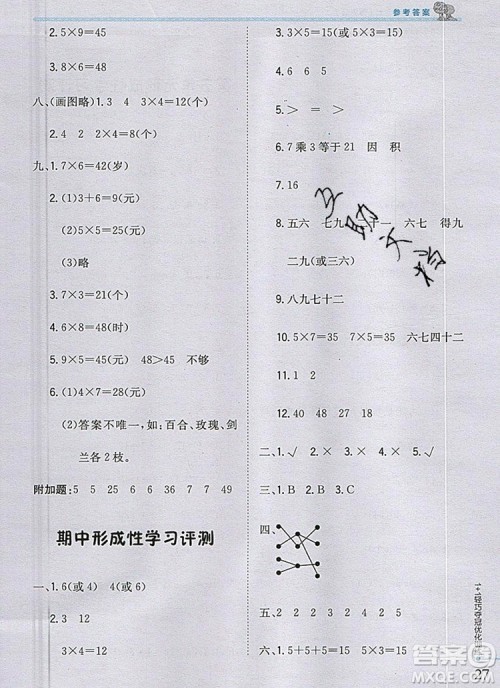 参考答案
2. 5×9=45
3. 8×6=48
八、(画图略)1. 3 4 3×4=12(个)
2. 4 2 4×2=8(个)
九、1. 7×6=42(岁)
2. (1)3+6=9(元)
(2)5×5=25(元)
(3)略
3. 7×3=21(元)
4. 6×8=48(时)
5. 9×5=45(元) 48>45 不够
6. (1)4×7=28(元)
(2)答案不唯一,如:百合、玫瑰、剑
兰各2枝。
附加题:5 5 25 6 6 36 7 7 49
期中形成性学习评测
一、1. 6(或4) 4(或6)
2. 3 12
3×4=12
3. 3 5 15 3×5=15(或5×3=15)
4. 6 6 5
5. > = >
6. 7 乘 3 等于 21 因 积
7. 16
8. 五六 七九 六七 得九
二九(或三六)
9. 八九七十二
10. 5×7=35 7×5=35 六七四十二
11. 8 2
12. 40 48 18 27
二、1. √ 2. × 3. × 4. × 5. √
三、1. B 2. B 3. A
四、
六、2 24 4 35 0 12
五、5+5+5=15 5×3=15
互助文档
1+1轻巧夺冠优化训练
答案圈
MXQE.COM
27